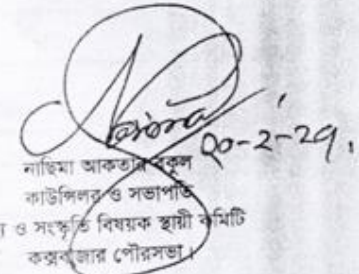 ২০-২-২১.
নাছিমা আকতার বকুল
কাউন্সিলর ও সভাপতি
ও সংস্কৃতি বিষয়ক স্থায়ী কমিটি
কক্সবাজার পৌরসভা।